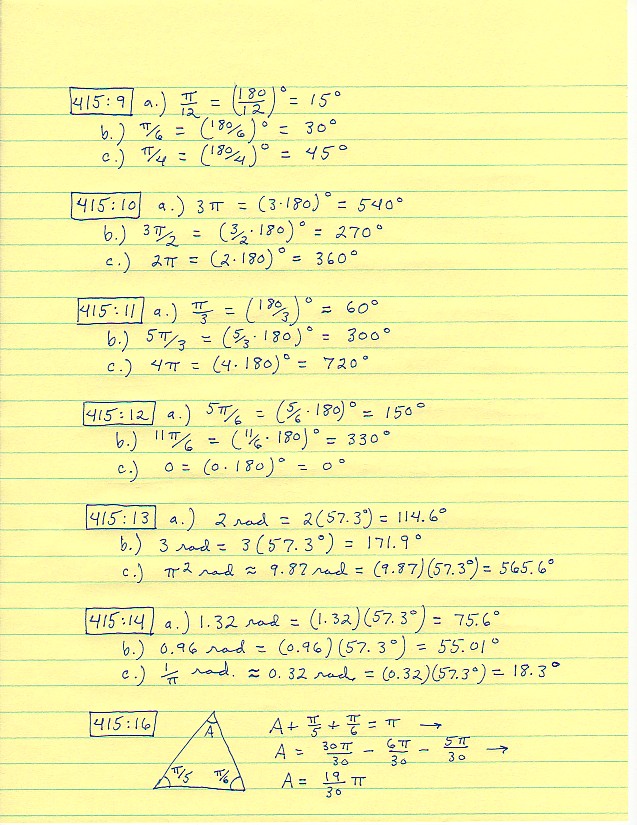 415:9 a.) π/12 = (180/12)° = 15°
b.) π/6 = (180/6)° = 30°
c.) π/4 = (180/4)° = 45°
415:10 a.) 3π = (3·180)° = 540°
b.) 3π/2 = (3/2·180)° = 270°
c.) 2π = (2·180)° = 360°
415:11 a.) π/3 = (180/3)° = 60°
b.) 5π/3 = (5/3·180)° = 300°
c.) 4π = (4·180)° = 720°
415:12 a.) 5π/6 = (5/6·180)° = 150°
b.) 11π/6 = (11/6·180)° = 330°
c.) 0 = (0·180)° = 0°
415:13 a.) 2 rad = 2(57.3°) = 114.6°
b.) 3 rad = 3(57.3°) = 171.9°
c.) π2 rad ≈ 9.87 rad = (9.87)(57.3°) = 565.6°
415:14 a.) 1.32 rad = (1.32)(57.3°) = 75.6°
b.) 0.96 rad = (0.96)(57.3°) = 55.01°
c.) 1/π rad. ≈ 0.32 rad. = (0.32)(57.3°) = 18.3°
415:16
A
π/5 π/6
A + π/5 + π/6 = π →
A = 30π/30 - 6π/30 - 5π/30 →
A = 19/30 π